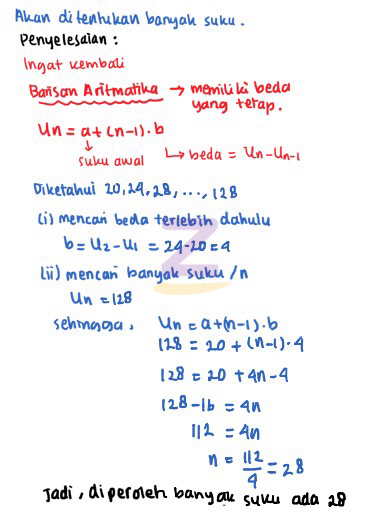 Akan ditentukan banyak suku.
Penyelesaian :
Ingat kembali
Barisan Aritmatika → memiliki beda
yang tetap.
Un = a + (n-1) . b
↓
suku awal ↳ beda = Un - Un-1
Diketahui 20, 24, 28, ..., 128
(i) mencari beda terlebih dahulu
b = U2 - U1 = 24-20 = 4
(ii) mencari banyak suku / n
Un = 128
sehingga, Un = a + (n-1) . b
128 = 20 + (n-1) . 4
128 = 20 + 4n - 4
128 - 16 = 4n
112 = 4n
n = 112/4 = 28
Jadi, diperoleh banyak suku ada 28